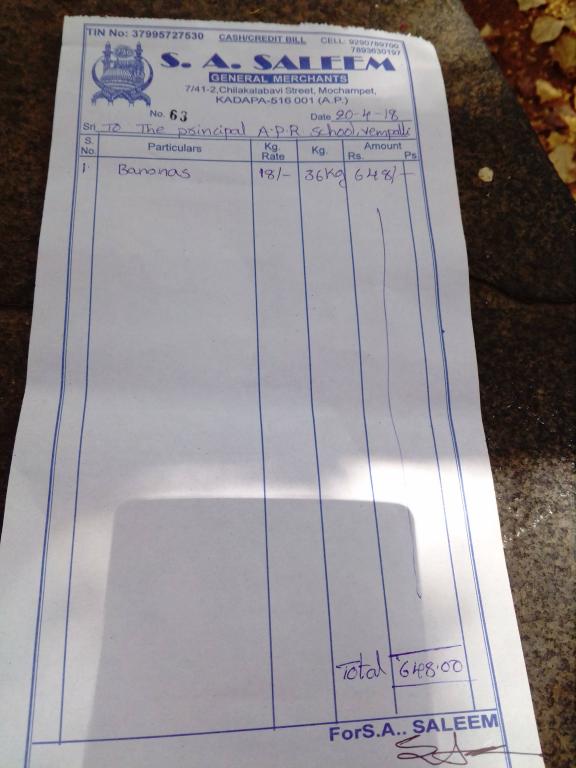 TIN No: 37995727530 CASH/CREDIT BILL CELL: 9290789700
7893630197
S. A. SALEEM
GENERAL MERCHANTS
7/41-2,Chilakalabavi Street, Mochampet,
KADAPA-516 001 (A.P.)
No. 63 Date 20-4-18
Sri To The principal A.P.R school, vempalli
S. No. Particulars Kg. Rate Kg. Amount Rs. Ps
1 Bananas 18/- 36kg 648/-
Total 648.00
ForS.A.. SALEEM